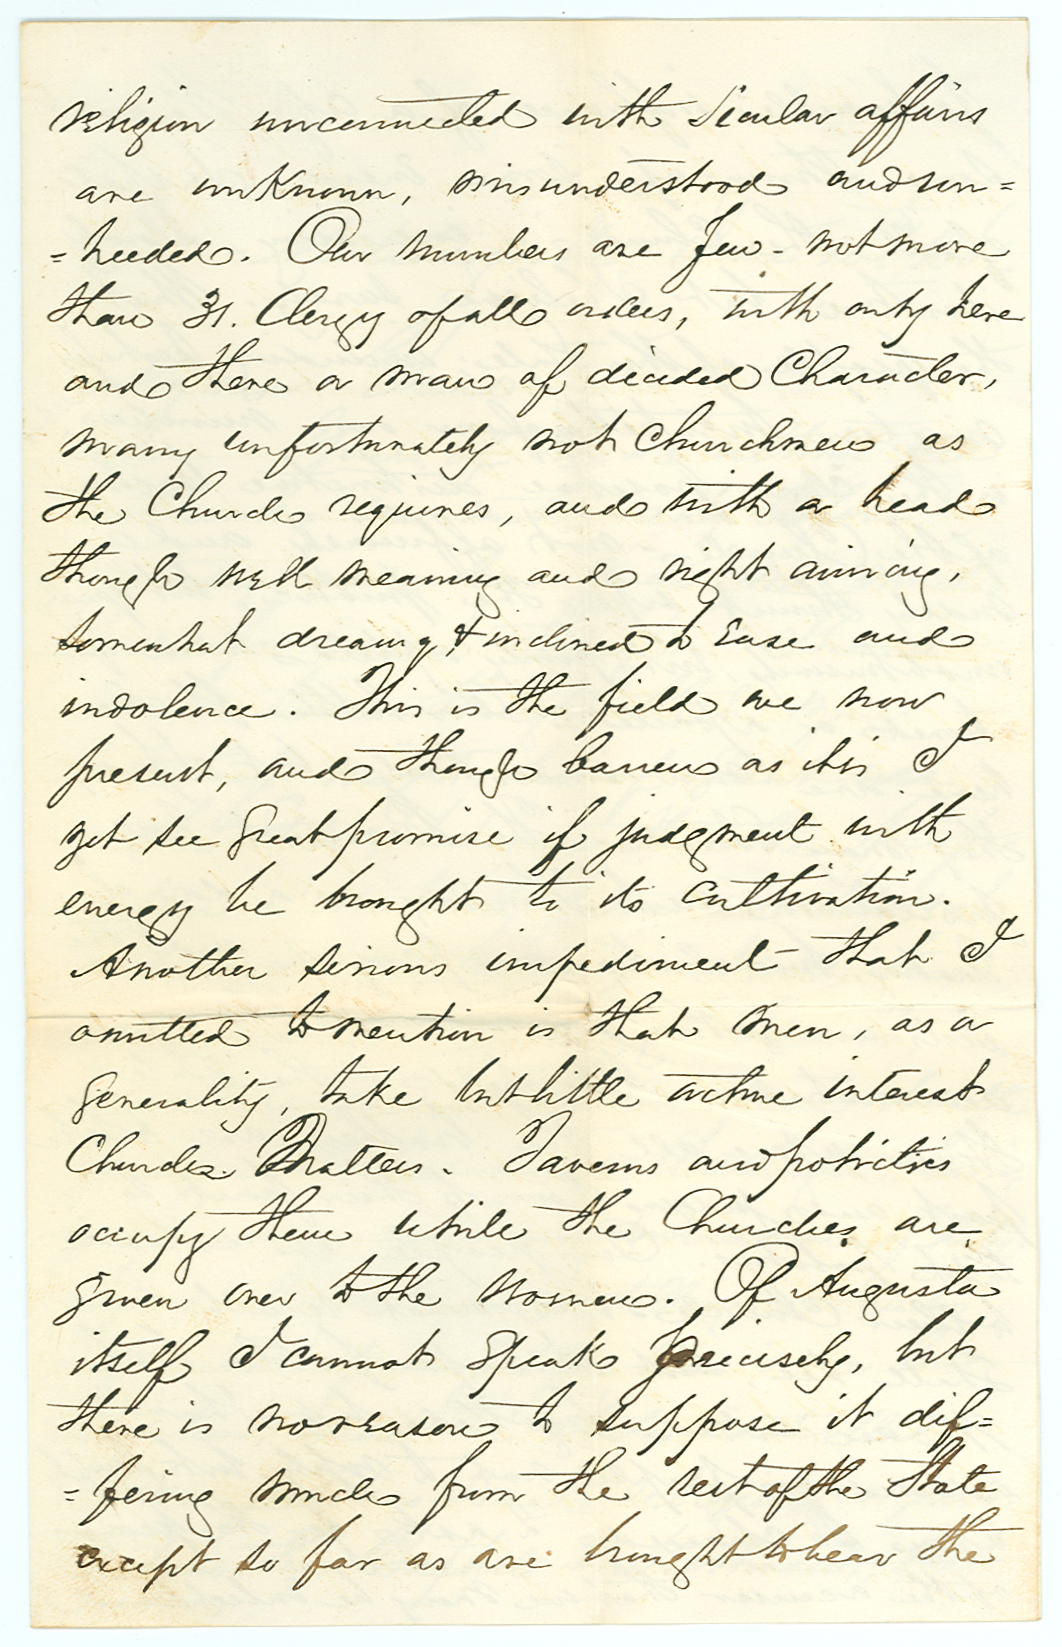 religion unconnected with secular affairs
are unknown, misunderstood and un=
=heeded. Our numbers are few - not more
than 31. Clergy of all orders, with only here
and there a man of decided Character,
many unfortunately not Churchmen as
the Church requires, and with a head
though well meaning and right aiming,
somewhat dreamy & inclined to ease and
indolence. This is the field we now
present, and though barren as it is I
yet see great promise if judgment with
energy be brought to its cultivation.
Another serious impediment that I
omitted to mention is that men, as a
generality, take but little active interest
Church Matters. Taverns and politics
occupy them while the Churches are
given over to the women. Of Augusta
itself I cannot speak precisely, but
there is no reason to suppose it dif=
=fering much from the rest of the State
except so far as are brought to bear the